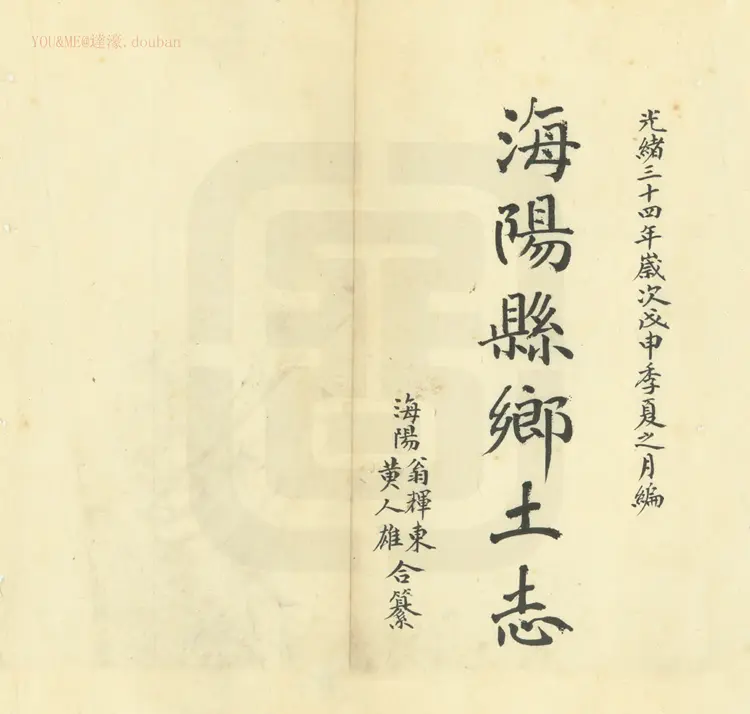 YOU&ME@達濠.douban
光緒三十四年嵗次戊申季夏之月編
海陽縣鄉土志
海陽翁輝東
黄人雄
合纂